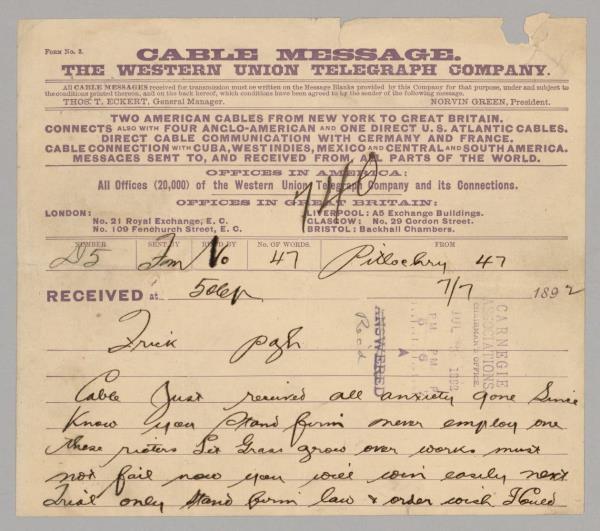 Form No. 2.
CABLE MESSAGE.
THE WESTERN UNION TELEGRAPH COMPANY.
All CABLE MESSAGES received for transmission must be written on the Message Blanks provided by this Company for that purpose, under and subject to
the conditions printed thereon, and on the back hereof, which conditions have been agreed to by the sender of the following message.
THOS. T. ECKERT, General Manager. NORVIN GREEN, President.
TWO AMERICAN CABLES FROM NEW YORK TO GREAT BRITAIN.
CONNECTS ALSO WITH FOUR ANGLO-AMERICAN AND ONE DIRECT U.S. ATLANTIC CABLES.
DIRECT CABLE COMMUNICATION WITH GERMANY AND FRANCE.
CABLE CONNECTION WITH CUBA, WEST INDIES, MEXICO AND CENTRAL AND SOUTH AMERICA.
MESSAGES SENT TO, AND RECEIVED FROM, ALL PARTS OF THE WORLD.
OFFICES IN AMERICA:
All Offices (20,000) of the Western Union Telegraph Company and its Connections.
OFFICES IN GREAT BRITAIN:
LONDON: LIVERPOOL: A5 Exchange Buildings.
No. 21 Royal Exchange, E. C. GLASGOW: No. 29 Gordon Street.
No. 109 Fenchurch Street, E. C. BRISTOL: Backhall Chambers.
740
NUMBER SENT BY REC'D BY No. OF WORDS. FROM
D5 47 Pitlochry 47
RECEIVED at 7/7 1892
CARNEGIE
ASSOCIATIONS
CHAIRMAN OFFICE
JUL 1892
ANSWERED
Rec'd
Frick pgh
Cable Just received all anxiety gone Since
Know you Stand firm never employ one
these rioters Let Grass grow over works must
not fail now you will win easily next
Trial only stand firm law & order wish I Could